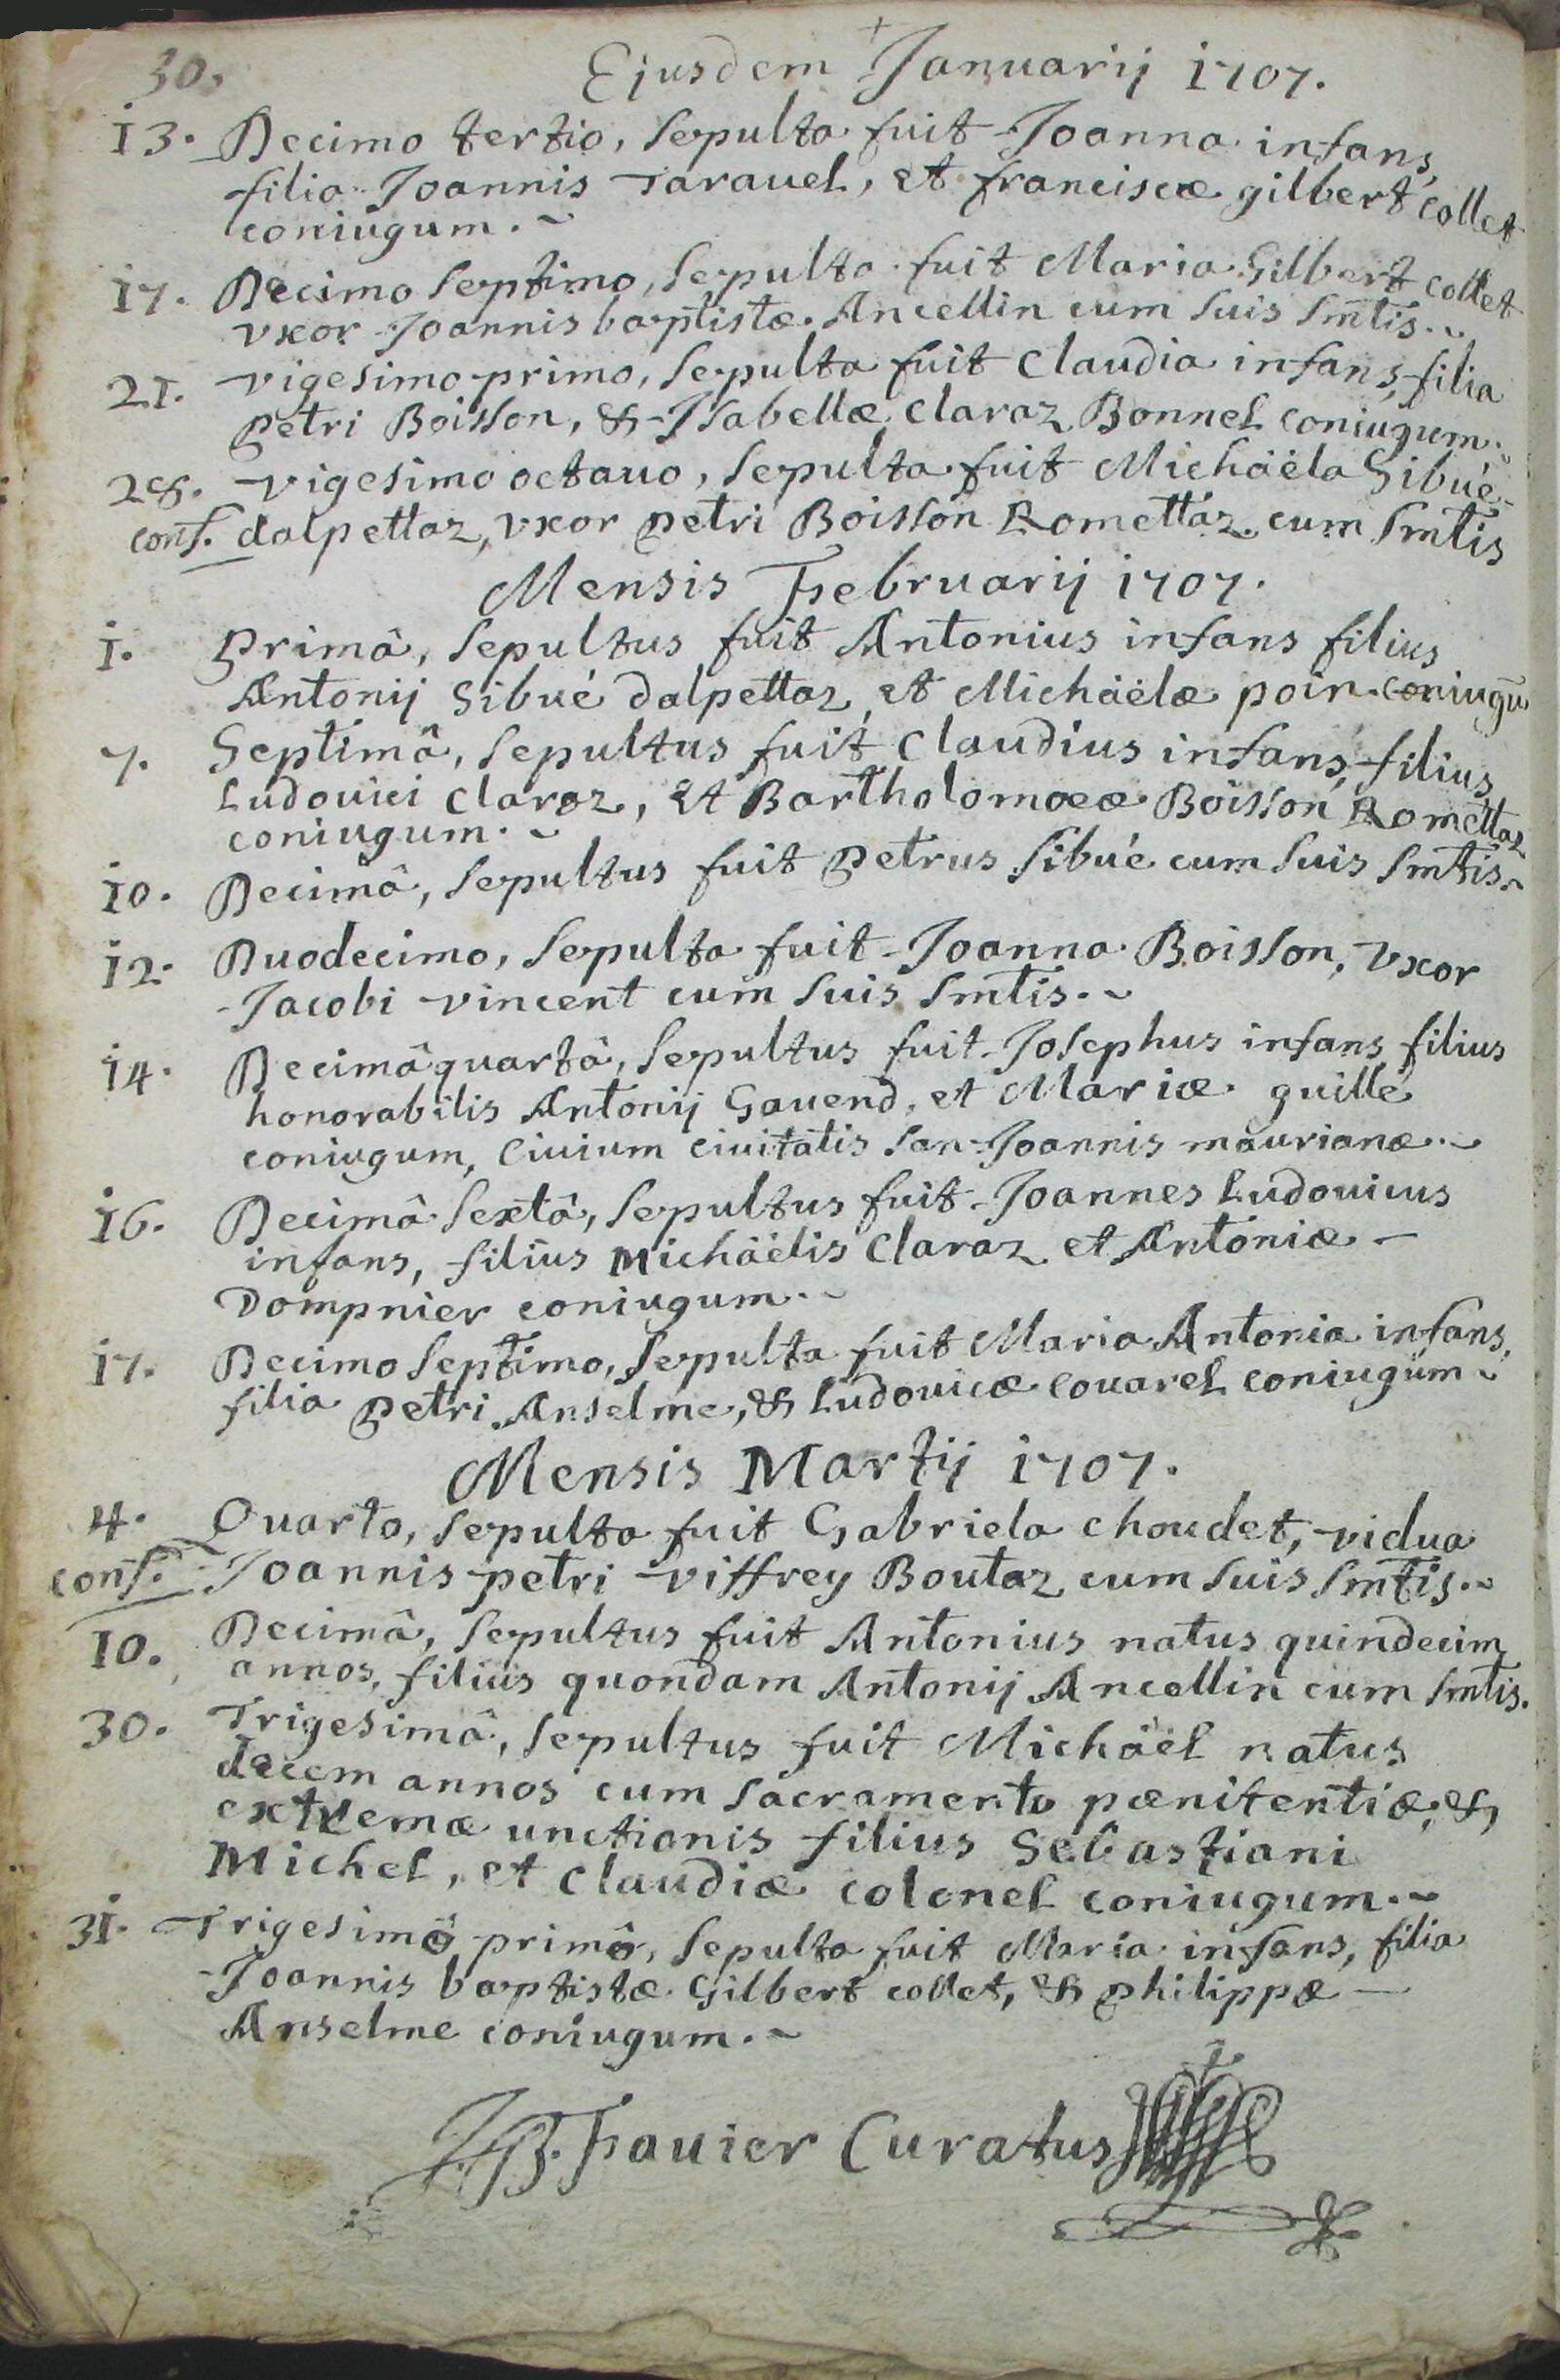 30.
Ejusdem Januarij 1707.
13. Decimo tertio, sepulta fuit Joanna infans,
filia Joannis Tarauel, et franciscæ gilbert collet
coniugum.~
17. Decimo septimo, sepulta fuit Maria Gilbert collet
vxor Joannis baptistæ Ancellin cum suis smtis.~
21. vigesimo primo, sepulta fuit claudia infans, filia
petri Boisson, & Isabellæ claraz Bonnel coniugum.~
28. vigesimo octauo, sepulta fuit Michäëla Sibué
conf. dalpettaz, vxor petri Boisson Romettaz cum smtis
Mensis Februarij 1707.
1. primâ, sepultus fuit Antonius infans filius
Antonij Sibué dalpettaz, et Michäëlæ poin coniugū
7. Septimâ, sepultus fuit claudius infans, filius
Ludouici claraz, et Bartholomoeæ Boisson Romettaz
coniugum.~
10. Decimâ, sepultus fuit petrus Sibué cum suis smtis.~
12. Duodecimo, sepulta fuit Joanna Boisson, vxor
Jacobi vincent cum suis smtis.~
14. Decimâ quartâ, sepultus fuit Josephus infans filius
honorabilis Antonij Gauend, et Mariæ guille
coniugum, ciuium ciuitatis san Joannis maurianæ.~
16. Decimâ sextâ, sepultus fuit Joannes Ludouicus
infans, filius Michäëlis claraz et Antoniæ –
Dompnier coniugum.~
17. Decimo septimo, sepulta fuit Maria Antonia infans,
filia petri Anselme, & Ludouicæ couarel coniugum~
Mensis Martij 1707.
4. Quarto, sepulta fuit Gabriela choudet, vidua
conf. Joannis petri viffrey Boutaz cum suis smtis.~
10. Decimâ, sepultus fuit Antonius natus quindecim
annos, filius quondam Antonij Ancellin cum smtis.
30. Trigesimâ, sepultus fuit Michäël natus
decem annos cum sacramento pænitentiæ, &
extremæ unctionis filius Sebastiani
Michel, et claudiæ colonel coniugum.~
31. Trigesimo primo, sepulta fuit Maria infans, filia
Joannis baptistæ Gilbert collet, & philippæ –
Anselme coniugum.~
JB. Fauier Curatus